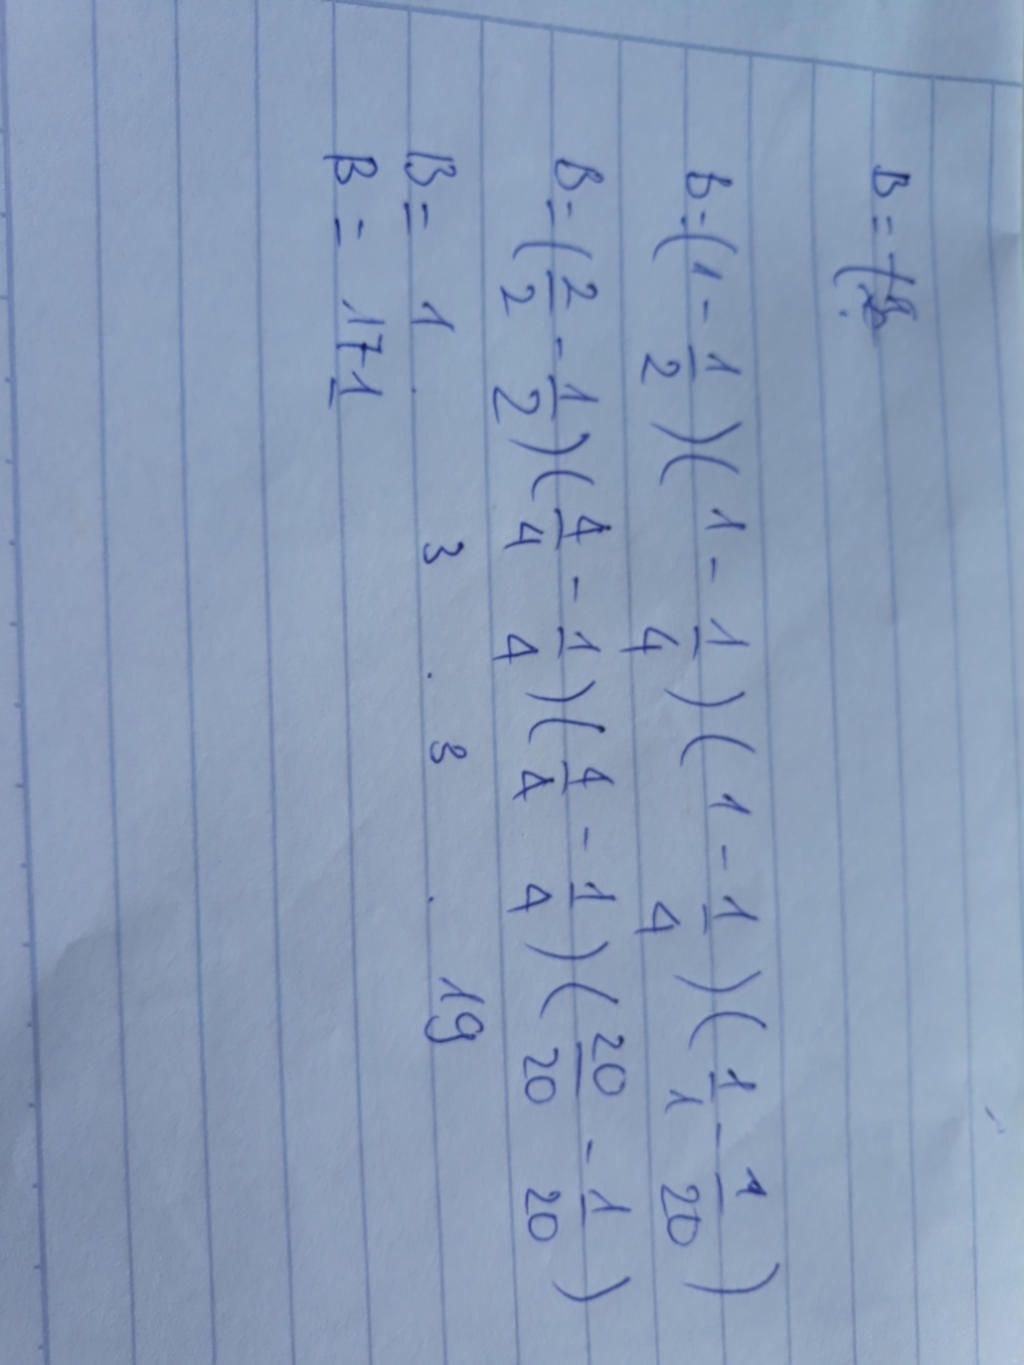 B =
b = (1 - 1/2)(1 - 1/4)(1 - 1/4)(1/1 - 1/20)
B = (2/2 - 1/2)(4/4 - 1/4)(4/4 - 1/4)(20/20 - 1/20)
B = 1 . 3 . 3 . 19
B = 171